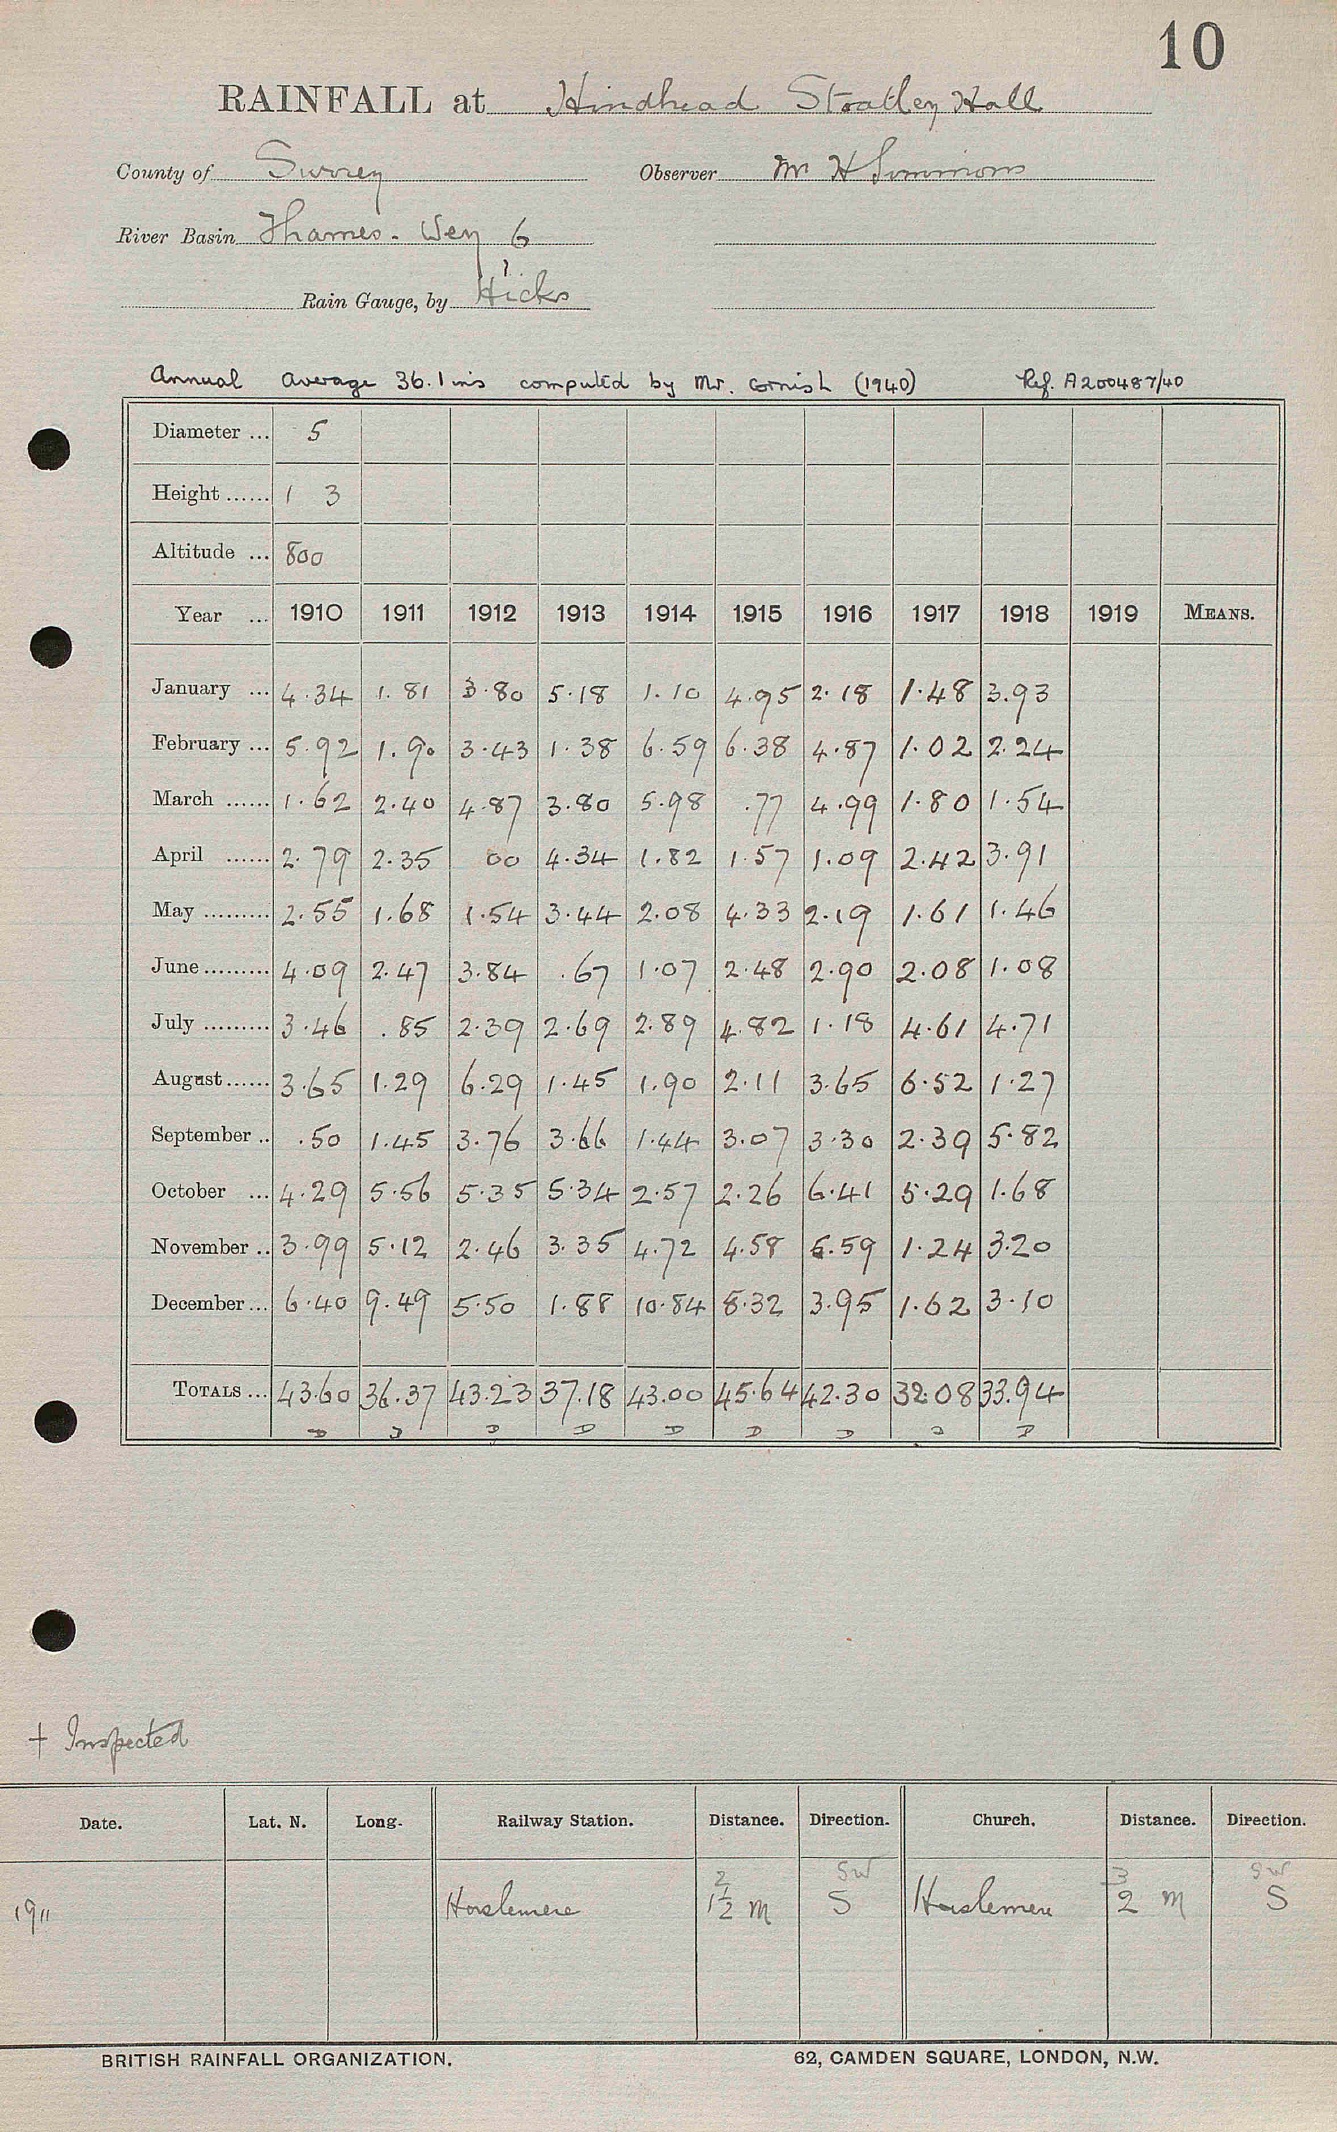 10
RAINFALL at Hindhead Stoatley Hall
County of Surrey Observer Mr H Simmons
River Basin Thames - Wey 6
Rain Gauge, by Hicks ?
Annual average 36.1 ins computed by Mr. Cornish (1940) Ref. A200487/40
Diameter ... 5
Height ...... 1 3
Altitude ... 800
Year ... 1910 1911 1912 1913 1914 1915 1916 1917 1918 1919 MEANS.
January ... 4.34 1.81 3.80 5.18 1.10 4.95 2.18 1.48 3.93
February ... 5.92 1.90 3.43 1.38 6.59 6.38 4.87 1.02 2.24
March ...... 1.62 2.40 4.87 3.80 5.98 .77 4.99 1.80 1.54
April ...... 2.79 2.35 00 4.34 1.82 1.57 1.09 2.42 3.91
May ......... 2.55 1.68 1.54 3.44 2.08 4.33 2.19 1.61 1.46
June ......... 4.09 2.47 3.84 .67 1.07 2.48 2.90 2.08 1.08
July ......... 3.46 .85 2.39 2.69 2.89 4.82 1.18 4.61 4.71
August ...... 3.65 1.29 6.29 1.45 1.90 2.11 3.65 6.52 1.27
September .. .50 1.45 3.76 3.66 1.44 3.07 3.30 2.39 5.82
October ... 4.29 5.56 5.35 5.34 2.57 2.26 6.41 5.29 1.68
November .. 3.99 5.12 2.46 3.35 4.72 4.58 5.59 1.24 3.20
December ... 6.40 9.49 5.50 1.88 10.84 8.32 3.95 1.62 3.10
TOTALS ... 43.60 36.37 43.23 37.18 43.00 45.64 42.30 32.08 33.94
+ Inspected
Date. Lat. N. Long. Railway Station. Distance. Direction. Church. Distance. Direction.
2 SW 3 SW
1911 Haslemere 1½ M S Haslemere 2 M S
BRITISH RAINFALL ORGANIZATION. 62, CAMDEN SQUARE, LONDON, N.W.